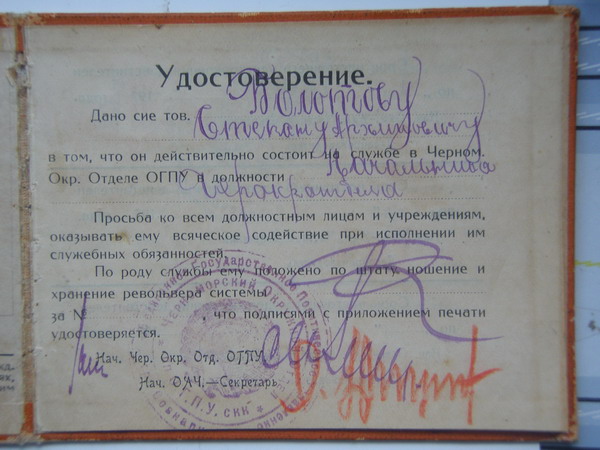 Удостоверение.
Дано сие тов. Болотову
Степану Архиповичу
в том, что он действительно состоит на службе в Черном.
Окр. Отделе ОГПУ в должности Начальника
Просьба ко всем должностным лицам и учреждениям,
оказывать ему всяческое содействие при исполнении им
служебных обязанностей.
По роду службы ему положено по штату, ношение и
хранение револьвера системы
за № , что подписями с приложением печати
удостоверяется.
Нач. Чер. Окр. Отд. ОГПУ
Нач. ОАЧ.—Секретарь